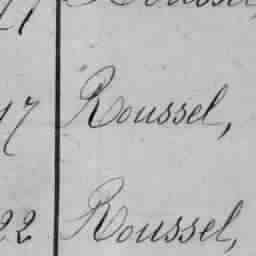 17 Roussel,
22 Roussel,